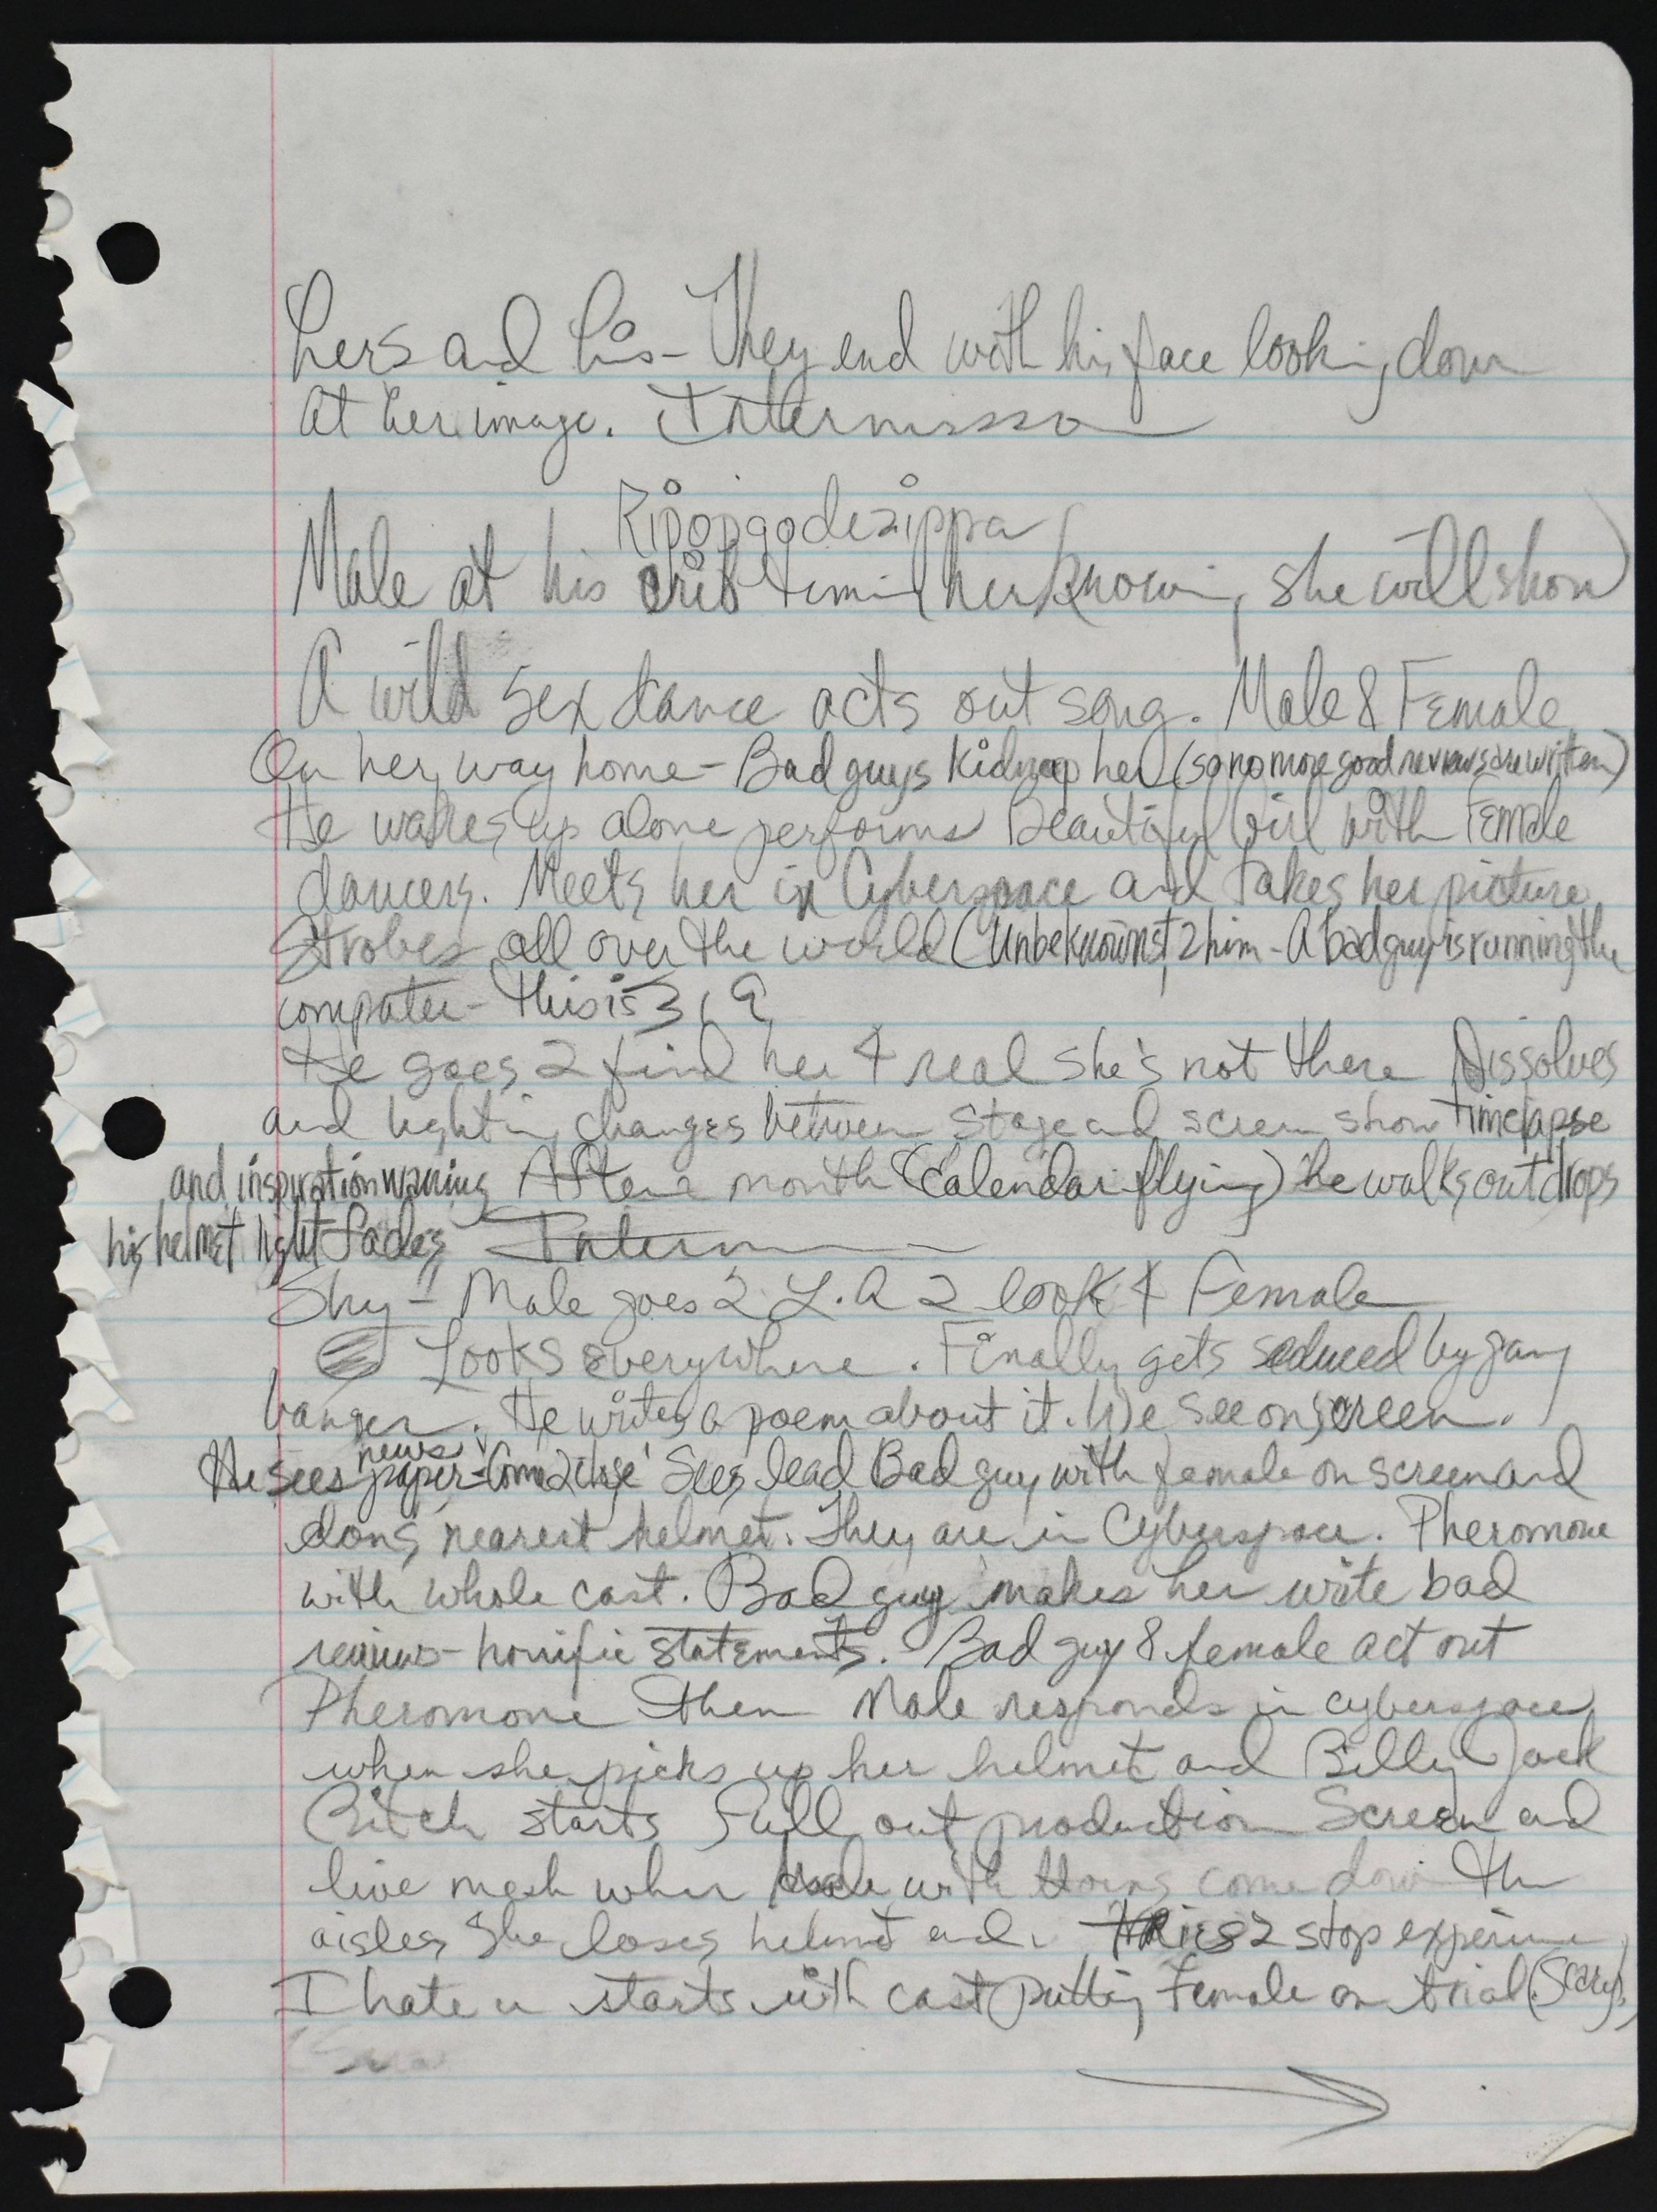 hers and his - They end with his face looking down
at her image. Intermission
Ripopgodazippa
Male at his crib (her knowing she will show)
A wild sex dance acts out song. Male & Female
On her way home - Bad guys kidnap her (so no more good reviews are written)
He wakes up alone performs Beautiful Girl with Female
dancers. Meets her in Cyberspace and takes her picture
Strobes all over the world (Unbeknownst 2 him - A bad guy is running the
computer - this is 319
He goes 2 find her 4 real she's not there Dissolves
and lighting changes between stage and screen show timelapse
and inspiration waning After a month (Calendar flying) he walks out drops
his helmet light fades Interm
Shy - Male goes 2 L.A 2 look 4 Female
Looks everywhere. Finally gets seduced by gang
banger. He writes a poem about it. We see on screen.
He sees newspaper - 'Come 2 close' Sees lead Bad guy with female on screen and
dons nearest helmet. They are in Cyberspace. Pheromone
with whole cast. Bad guy makes her write bad
reviews - horrific statements. Bad guy & female act out
Pheromone then Male responds in cyberspace
when she picks up her helmet and Billy Jack
Bitch starts Full out production Screen and
live mesh when Male with come down the
aisles She loses helmet and tries 2 stop
I hate u starts with cast putting Female on trial. (Scary)